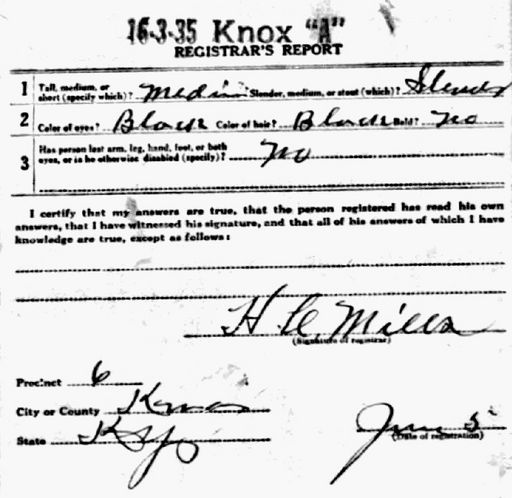 16-3-35 Knox "A"
REGISTRAR'S REPORT
1 Tall, medium, or short (specify which)? Medium Slender, medium, or stout (which)? Slender
2 Color of eyes? Black Color of hair? Black Bald? No
3 Has person lost arm, leg, hand, foot, or both eyes, or is he otherwise disabled (specify)? No
I certify that my answers are true, that the person registered has read his own
answers, that I have witnessed his signature, and that all of his answers of which I have
knowledge are true, except as follows:
H C Mills
(Signature of registrar)
Precinct 6
City or County Knox
State Ky
June 5
(Date of registration)